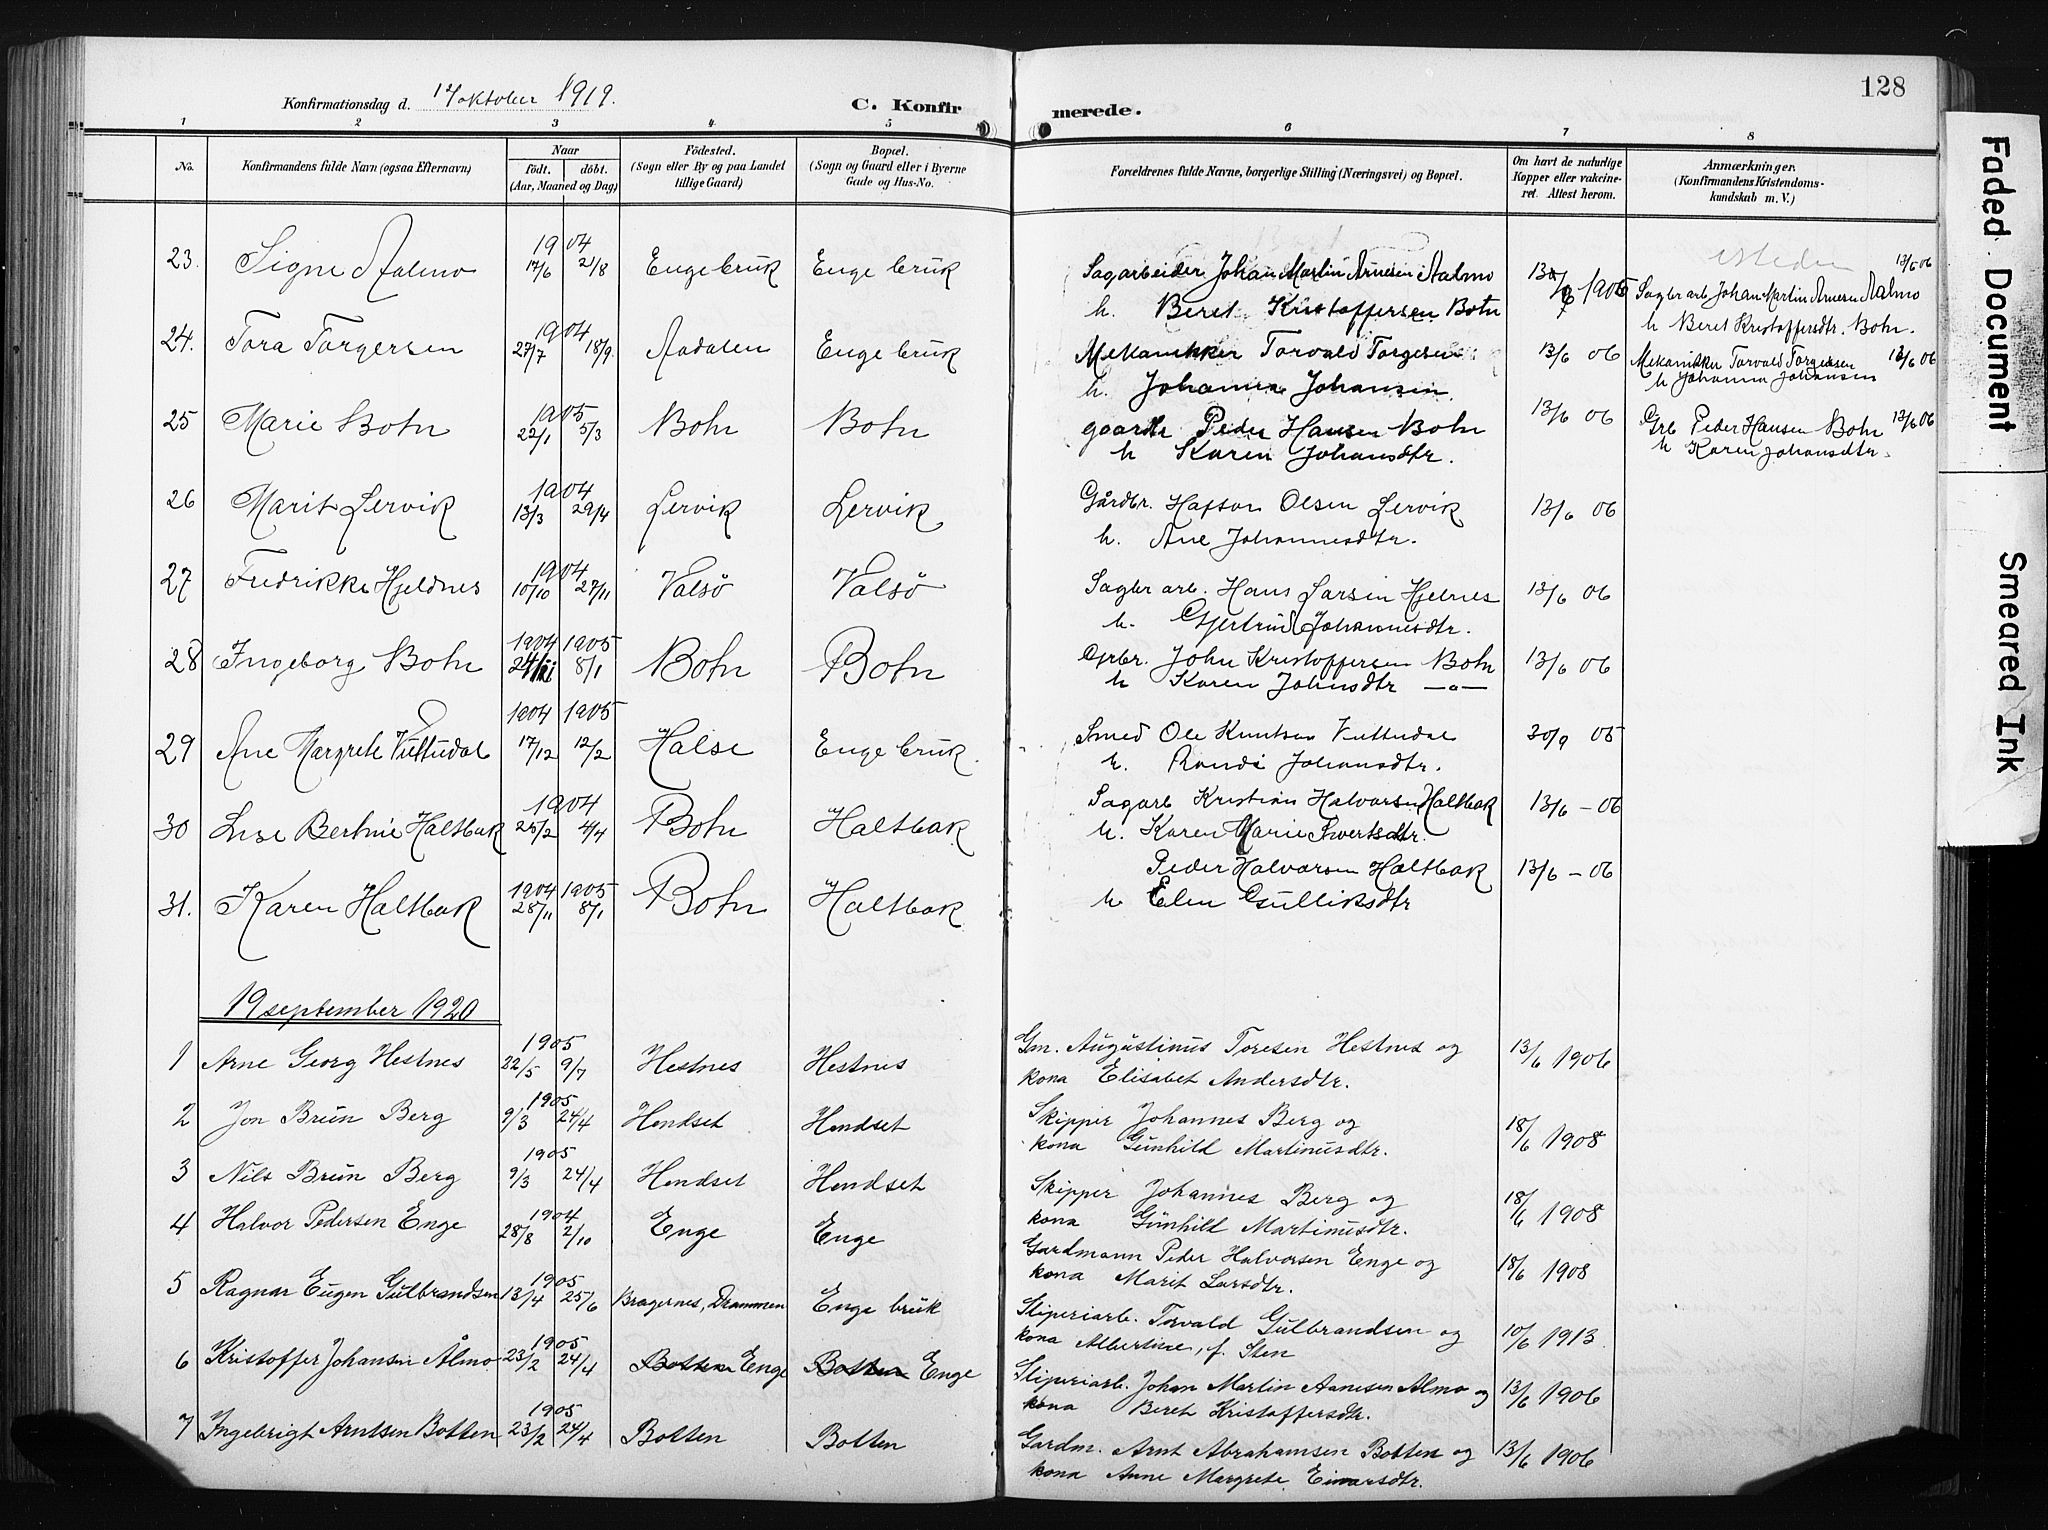 128
Konfirmationsdag d. 17 oktober 1919.
C. Konfirmerede.
1 2 3 4 5 6 7 8
No. Konfirmandens fulde Navn (ogsaa Efternavn) Naar født. døbt. (Aar, Maaned og Dag) Fødested. (Sogn eller By og paa Landet tillige Gaard) Bopæl. (Sogn og Gaard eller i Byerne Gade og Hus-No. Forældrenes fulde Navne, borgerlige Stilling (Næringsvei) og Bopæl. Om havt de naturlige Kopper eller vakcineret. Attest herom. Anmærkninger. (Konfirmandens Kristendomskundskab m. V.)
23. Signe Aalmo 1904 17/6 21/8 Engebruk Enge bruk Sagarbeider Johan Martin Arnesen Aalmo 13/6 1906 13/6 06 Sagbr arb Johan Martin Arnesen Aalmo
h. Beret Kristoffersen Bohn h Beret Kristoffersdtr. Bohn.
24. Tora Torgersen 1904 27/7 18/9 Aadalen Enge bruk Mekanikker Torvald Torgersen 13/6 06 Mekanikker Torvald Torgersen 13/6 06
h. Johanna Johansen. h Johanna Johansen
25 Marie Bohn 1905 22/1 5/3 Bohn Bohn gaardbr Peder Hansen Bohn 13/6 06 Grb Peder Hansen Bohn 13/6 06
h Karen Johansdtr. h Karen Johansdtr.
26 Marit Lervik 1904 13/3 29/4 Lervik Lervik Gårdbr. Hafson Olsen Lervik 13/6 06
h. Ane Johannesdtr.
27 Fredrikke Hjeldnes 1904 10/10 27/11 Valsö Valsö Sagbr arb. Hans Larsen Hjelnes 13/6 06
h. Gjertrud Johannesdtr.
28 Ingeborg Bohn 1904 1905 24/11 8/1 Bohn Bohn Grbr. John Kristoffersen Bohn 13/6 06
h Karen Johnsdtr —"—
29 Ane Margrete Vuttudal 1904 1905 17/12 12/2 Halse Enge bruk. Smed Ole Knutsen Vuttudal 30/9 05
h. Randi Johansdtr.
30 Lise Bertine Haltbak 1904 25/2 4/4 Bohn Haltbak Sagarb Kristian Halvorsen Haltbak 13/6 – 06
h. Karen Marie Sivertsdtr.
31. Karen Haltbak 1904 1905 28/11 8/1 Bohn Haltbak Peder Halvorsen Haltbak 13/6 – 06
h Elen Gulliksdtr
19 september 1920
1 Arne Georg Hestnes 1905 22/5 9/7 Hestnes Hestnes Gm. Augustinus Toresen Hestnes og 13/6 1906
kona Elisabet Andersdtr.
2 Jon Brun Berg 1905 9/3 24/4 Hendset Hendset Skipper Johannes Berg og 18/6 1908
kona Gunhild Martinusdtr.
3 Nils Brun Berg 1905 9/3 24/4 Hendset Hendset Skipper Johannes Berg og 18/6 1908
kona Gunhild Martinusdtr.
4 Halvor Pedersen Enge 1904 28/8 2/10 Enge Enge Gardmann Peder Halvorsen Enge og 18/6 1908
kona Marit Larsdtr.
5 Ragnar Eugen Gulbrandsen 1905 13/4 25/6 Bragernes, Drammen Enge bruk Sliperiarb. Torvald Gulbrandsen og 10/6 1913
kona Albertine, f. Sten
6 Kristoffer Johansen Ålmo 1905 23/2 24/4 Botten Enge Botten Enge Sliperiarb. Johan Martin Aanesen Almo og 13/6 1906
kona Beret Kristoffersdtr.
7 Ingebrigt Arntsen Botten 1905 23/2 24/4 Botten Botten Gardm. Arnt Abrahamsen Botten og 13/6 1906
kona Anne Margrete Einarsdtr.
Faded Document
Smeared Ink